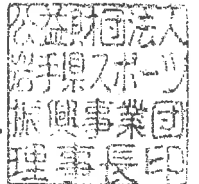 公益財団法人
岩手県スポーツ
振興事業団
理事長印